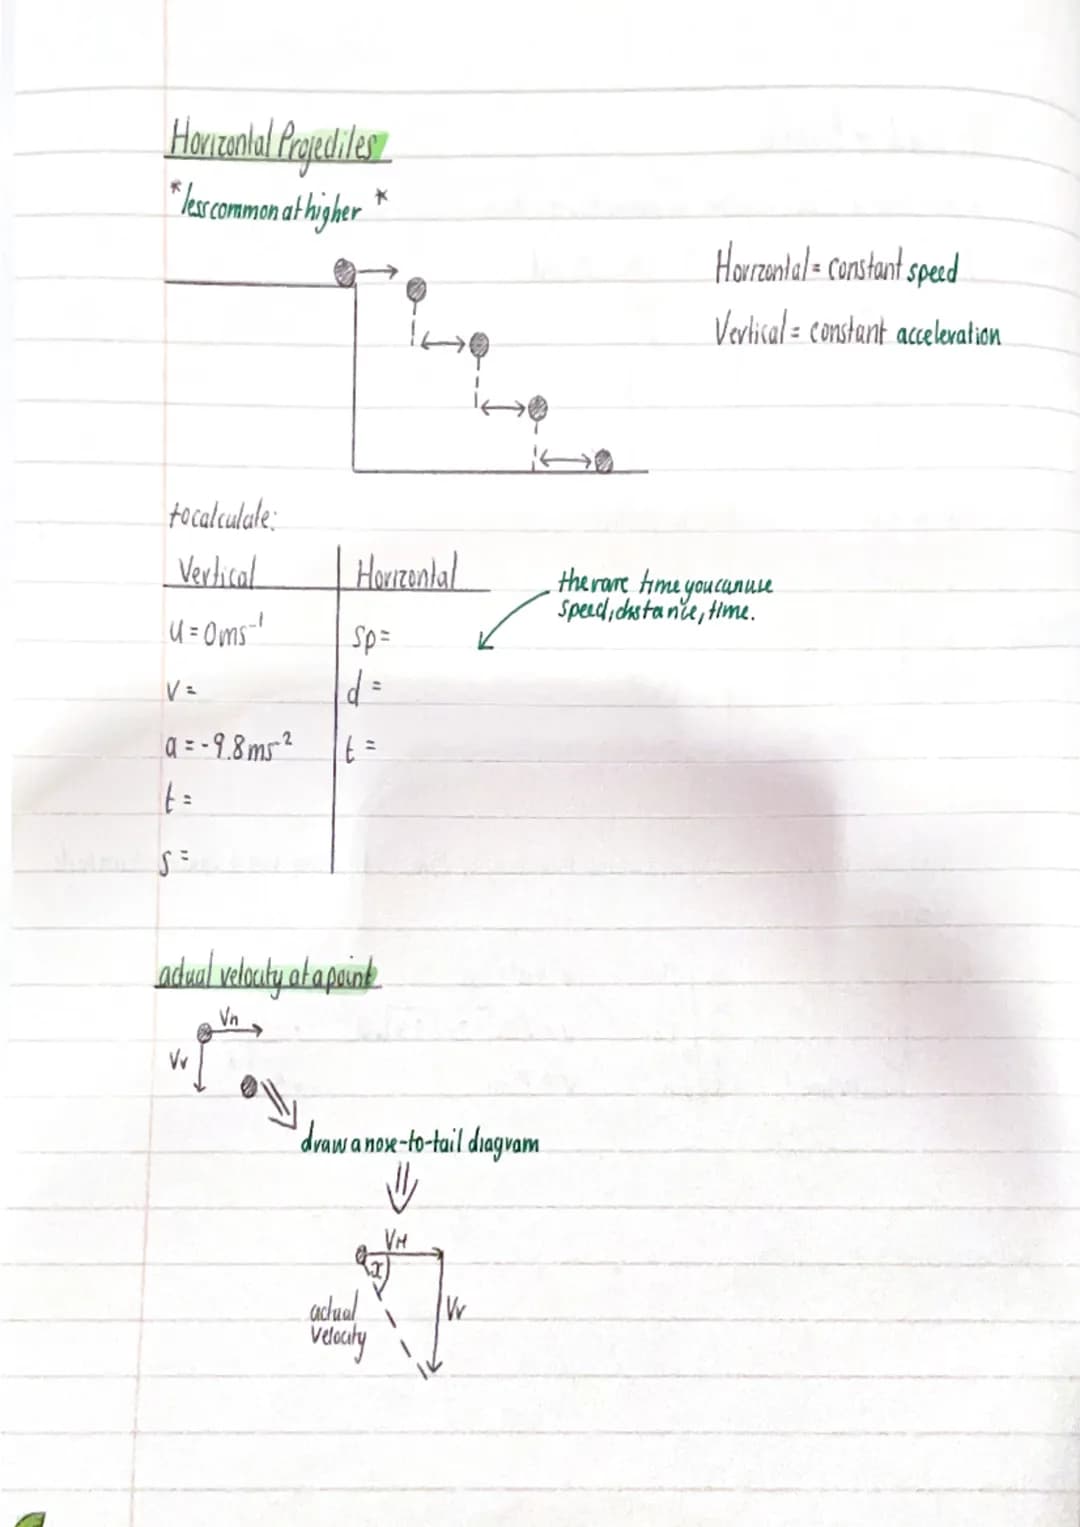 Horizontal Projectiles
*less common at higher *
Horizontal = constant speed
Vertical = constant acceleration
to calculate:
Vertical
Horizontal
the rare time you can use
speed, distance, time.
u = 0ms⁻¹
sp =
v =
d =
a = -9.8ms⁻²
t =
t =
s =
actual velocity at a point
Vh
Vv
draw a nose-to-tail diagram
VH
x
actual
velocity
Vv